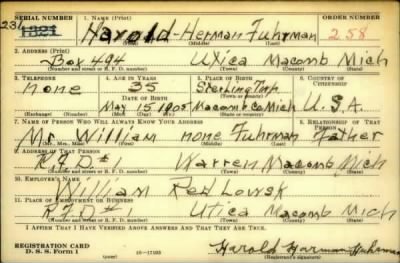 SERIAL NUMBER 1. NAME (Print) ORDER NUMBER
231 Harold Herman Fuhrman 258
1321
(First) (Middle) (Last)
2. ADDRESS (Print)
Box 494 Utica Macomb Mich
(Number and street or R. F. D. number) (Town) (County) (State)
3. TELEPHONE 4. AGE IN YEARS 5. PLACE OF BIRTH 6. COUNTRY OF CITIZENSHIP
none 35 Sterling Twp
DATE OF BIRTH
May 15 1905 Macomb Co Mich U.S.A.
(Exchange) (Number) (Mo.) (Day) (Yr.) (State or country)
7. NAME OF PERSON WHO WILL ALWAYS KNOW YOUR ADDRESS 8. RELATIONSHIP OF THAT PERSON
Mr. William none Fuhrman Father
(Mr., Mrs., Miss) (First) (Middle) (Last)
9. ADDRESS OF THAT PERSON
R.F.D #1 Warren Macomb Mich
(Number and street or R. F. D. number) (Town) (County) (State)
10. EMPLOYER'S NAME
William Red Lowsk
11. PLACE OF EMPLOYMENT OR BUSINESS
R.F.D #1 Utica Macomb Mich
(Number and street or R. F. D. number) (Town) (County) (State)
I AFFIRM THAT I HAVE VERIFIED ABOVE ANSWERS AND THAT THEY ARE TRUE.
REGISTRATION CARD
D. S. S. Form 1 (over) 16-17105 Harold Herman Fuhrman
(Registrant's signature)